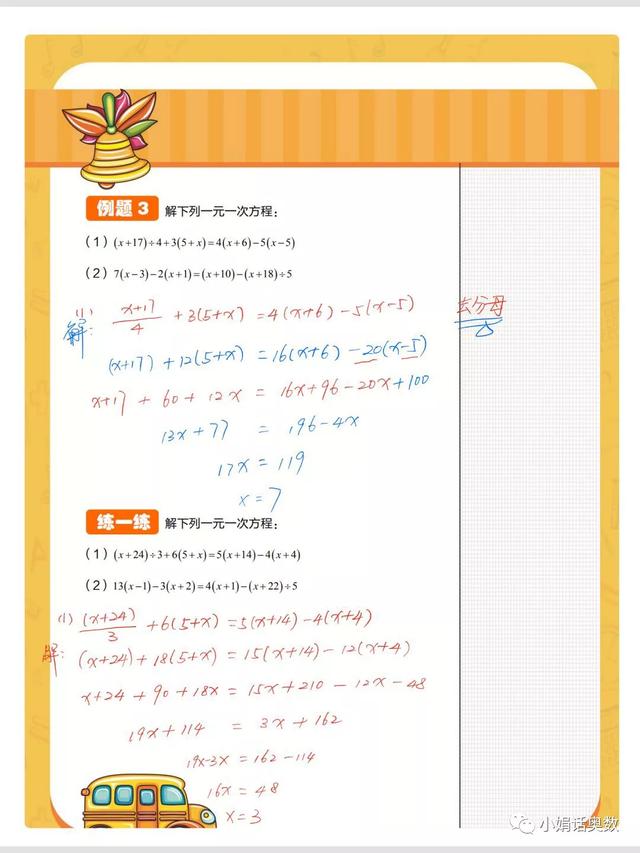 例题 3 解下列一元一次方程：
（1）(x+17)÷4+3(5+x)=4(x+6)−5(x−5)
（2）7(x−3)−2(x+1)=(x+10)−(x+18)÷5
(1) (x+17)/4 + 3(5+x) = 4(x+6) − 5(x−5) 去分母
解： (x+17) + 12(5+x) = 16(x+6) − 20(x−5)
x+17 + 60 + 12x = 16x+96−20x+100
13x+77 = 196−4x
17x = 119
x = 7
练一练 解下列一元一次方程：
（1）(x+24)÷3+6(5+x)=5(x+14)−4(x+4)
（2）13(x−1)−3(x+2)=4(x+1)−(x+22)÷5
(1) (x+24)/3 + 6(5+x) = 5(x+14) − 4(x+4)
解： (x+24) + 18(5+x) = 15(x+14) − 12(x+4)
x+24 + 90 + 18x = 15x+210 − 12x − 48
19x+114 = 3x + 162
19x−3x = 162 − 114
16x = 48
x = 3
小娟话奥数